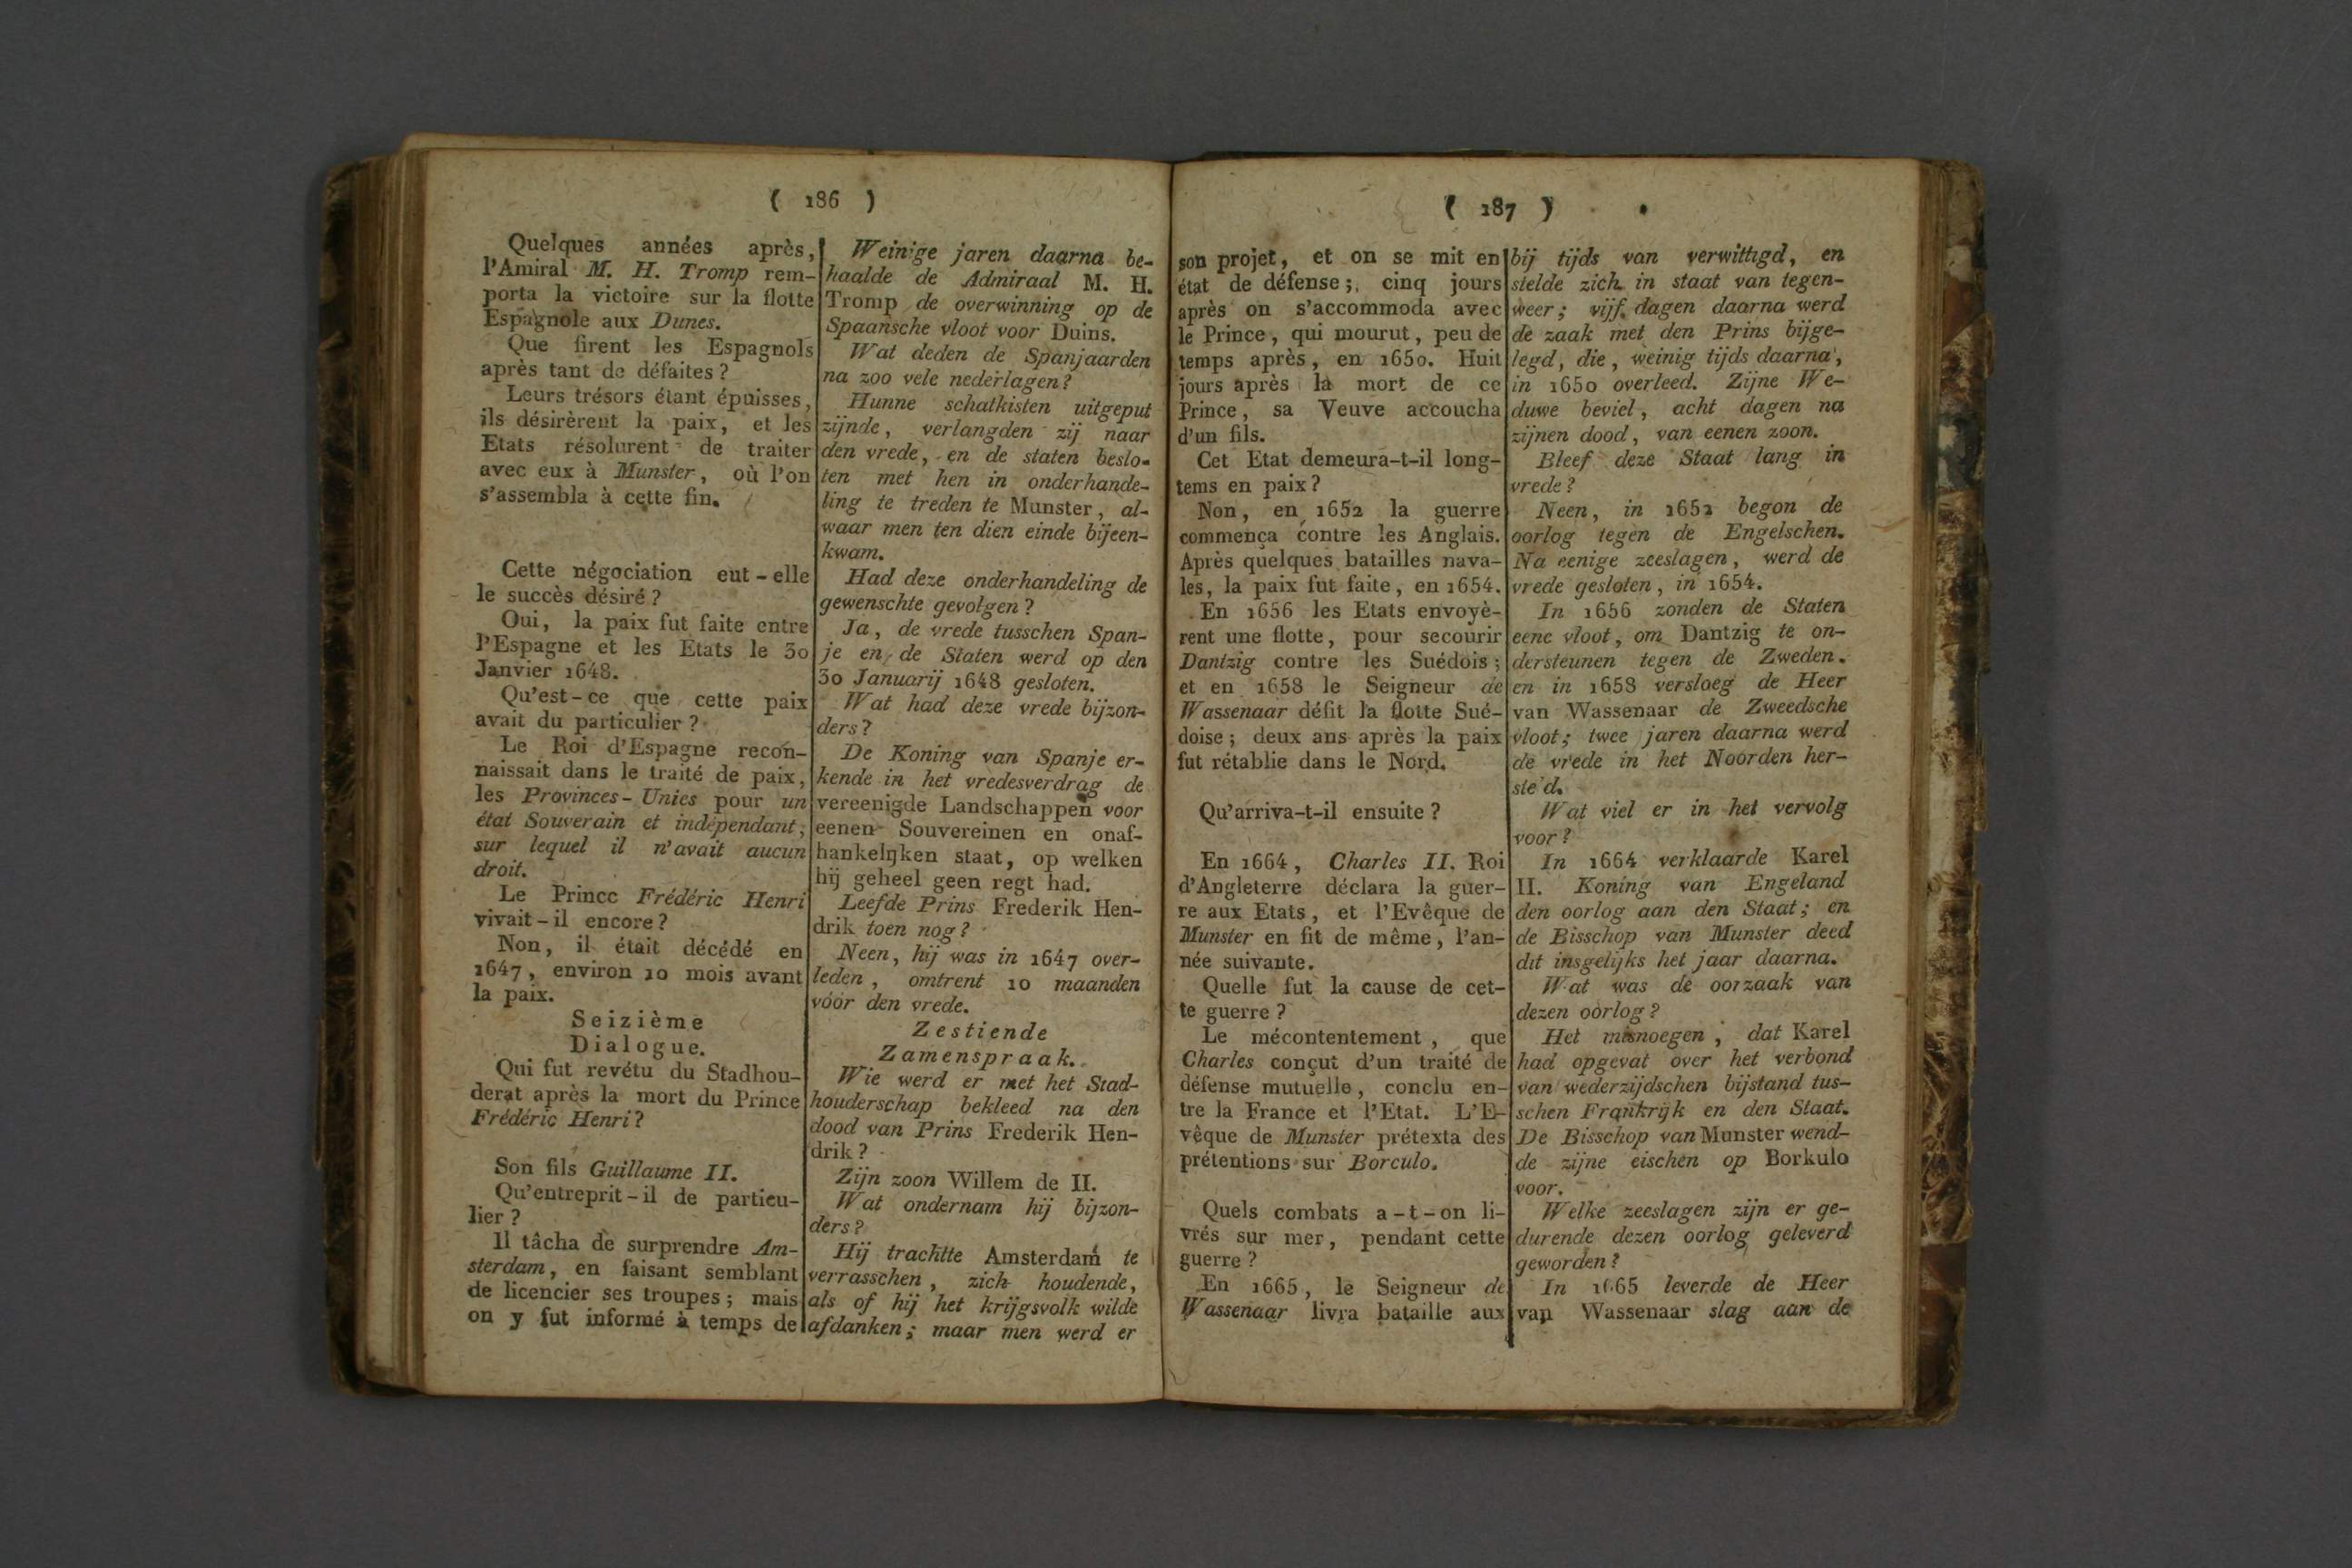 ( 186 )
Quelques années après,
l'Amiral M. H. Tromp rem-
porta la victoire sur la flotte
Espagnole aux Dunes.
Que firent les Espagnols
après tant de défaites ?
Leurs trésors étant épuisses,
ils désirèrent la paix, et les
Etats résolurent de traiter
avec eux à Munster, où l'on
s'assembla à cette fin.
Cette négociation eut-elle
le succès désiré ?
Oui, la paix fut faite entre
l'Espagne et les Etats le 30
Janvier 1648.
Qu'est-ce que cette paix
avait du particulier ?
Le Roi d'Espagne recon-
naissait dans le traité de paix,
les Provinces-Unies pour un
état Souverain et indépendant,
sur lequel il n'avait aucun
droit.
Le Prince Frédéric Henri
vivait-il encore ?
Non, il était décédé en
1647, environ 10 mois avant
la paix.
Seizième
Dialogue.
Qui fut revétu du Stadhou-
derat après la mort du Prince
Frédéric Henri ?
Son fils Guillaume II.
Qu'entreprit-il de particu-
lier ?
Il tâcha de surprendre Am-
sterdam, en faisant semblant
de licencier ses troupes ; mais
on y fut informé à temps de
Weinige jaren daarna be-
haalde de Admiraal M. H.
Tromp de overwinning op de
Spaansche vloot voor Duins.
Wat deden de Spanjaarden
na zoo vele nederlagen ?
Hunne schatkisten uitgeput
zijnde, verlangden zij naar
den vrede, en de staten beslo-
ten met hen in onderhande-
ling te treden te Munster, al-
waar men ten dien einde bijeen-
kwam.
Had deze onderhandeling de
gewenschte gevolgen ?
Ja, de vrede tusschen Span-
je en de Staten werd op den
30 Januarij 1648 gesloten.
Wat had deze vrede bijzon-
ders ?
De Koning van Spanje er-
kende in het vredesverdrag de
vereenigde Landschappen voor
eenen Souvereinen en onaf-
hankelijken staat, op welken
hij geheel geen regt had.
Leefde Prins Frederik Hen-
drik toen nog ?
Neen, hij was in 1647 over-
leden, omtrent 10 maanden
vóór den vrede.
Zestiende
Zamenspraak.
Wie werd er met het Stad-
houderschap bekleed na den
dood van Prins Frederik Hen-
drik ?
Zijn zoon Willem de II.
Wat ondernam hij bijzon-
ders ?
Hij trachtte Amsterdam te
verrasschen, zich houdende,
als of hij het krijgsvolk wilde
afdanken ; maar men werd er
( 187 )
son projet, et on se mit en
état de défense ; cinq jours
après on s'accommoda avec
le Prince, qui mourut, peu de
temps après, en 1650. Huit
jours après la mort de ce
Prince, sa Veuve accoucha
d'un fils.
Cet Etat demeura-t-il long-
tems en paix ?
Non, en 1652 la guerre
commença contre les Anglais.
Après quelques batailles nava-
les, la paix fut faite, en 1654.
En 1656 les Etats envoyè-
rent une flotte, pour secourir
Dantzig contre les Suédois ;
et en 1658 le Seigneur de
Wassenaar défit la flotte Sué-
doise ; deux ans après la paix
fut rétablie dans le Nord.
Qu'arriva-t-il ensuite ?
En 1664, Charles II. Roi
d'Angleterre déclara la guer-
re aux Etats, et l'Evêque de
Munster en fit de même, l'an-
née suivante.
Quelle fut la cause de cet-
te guerre ?
Le mécontentement, que
Charles conçut d'un traité de
défense mutuelle, conclu en-
tre la France et l'Etat. L'E-
vêque de Munster prétexta des
prétentions sur Borculo.
Quels combats a-t-on li-
vrés sur mer, pendant cette
guerre ?
En 1665, le Seigneur de
Wassenaar livra bataille aux
bij tijds van verwittigd, en
stelde zich in staat van tegen-
weer ; vijf dagen daarna werd
de zaak met den Prins bijge-
legd, die, weinig tijds daarna,
in 1650 overleed. Zijne We-
duwe beviel, acht dagen na
zijnen dood, van eenen zoon.
Bleef deze Staat lang in
vrede ?
Neen, in 1652 begon de
oorlog tegen de Engelschen.
Na eenige zeeslagen, werd de
vrede gesloten, in 1654.
In 1656 zonden de Staten
eene vloot, om Dantzig te on-
dersteunen tegen de Zweden.
en in 1658 versloeg de Heer
van Wassenaar de Zweedsche
vloot ; twee jaren daarna werd
de vrede in het Noorden her-
ste'd.
Wat viel er in het vervolg
voor ?
In 1664 verklaarde Karel
II. Koning van Engeland
den oorlog aan den Staat ; en
de Bisschop van Munster deed
dit insgelijks het jaar daarna.
Wat was de oorzaak van
dezen oorlog ?
Het misnoegen, dat Karel
had opgevat over het verbond
van wederzijdschen bijstand tus-
schen Frankrijk en den Staat.
De Bisschop van Munster wend-
de zijne eischen op Borkulo
voor.
Welke zeeslagen zijn er ge-
durende dezen oorlog geleverd
geworden ?
In 1665 leverde de Heer
van Wassenaar slag aan de